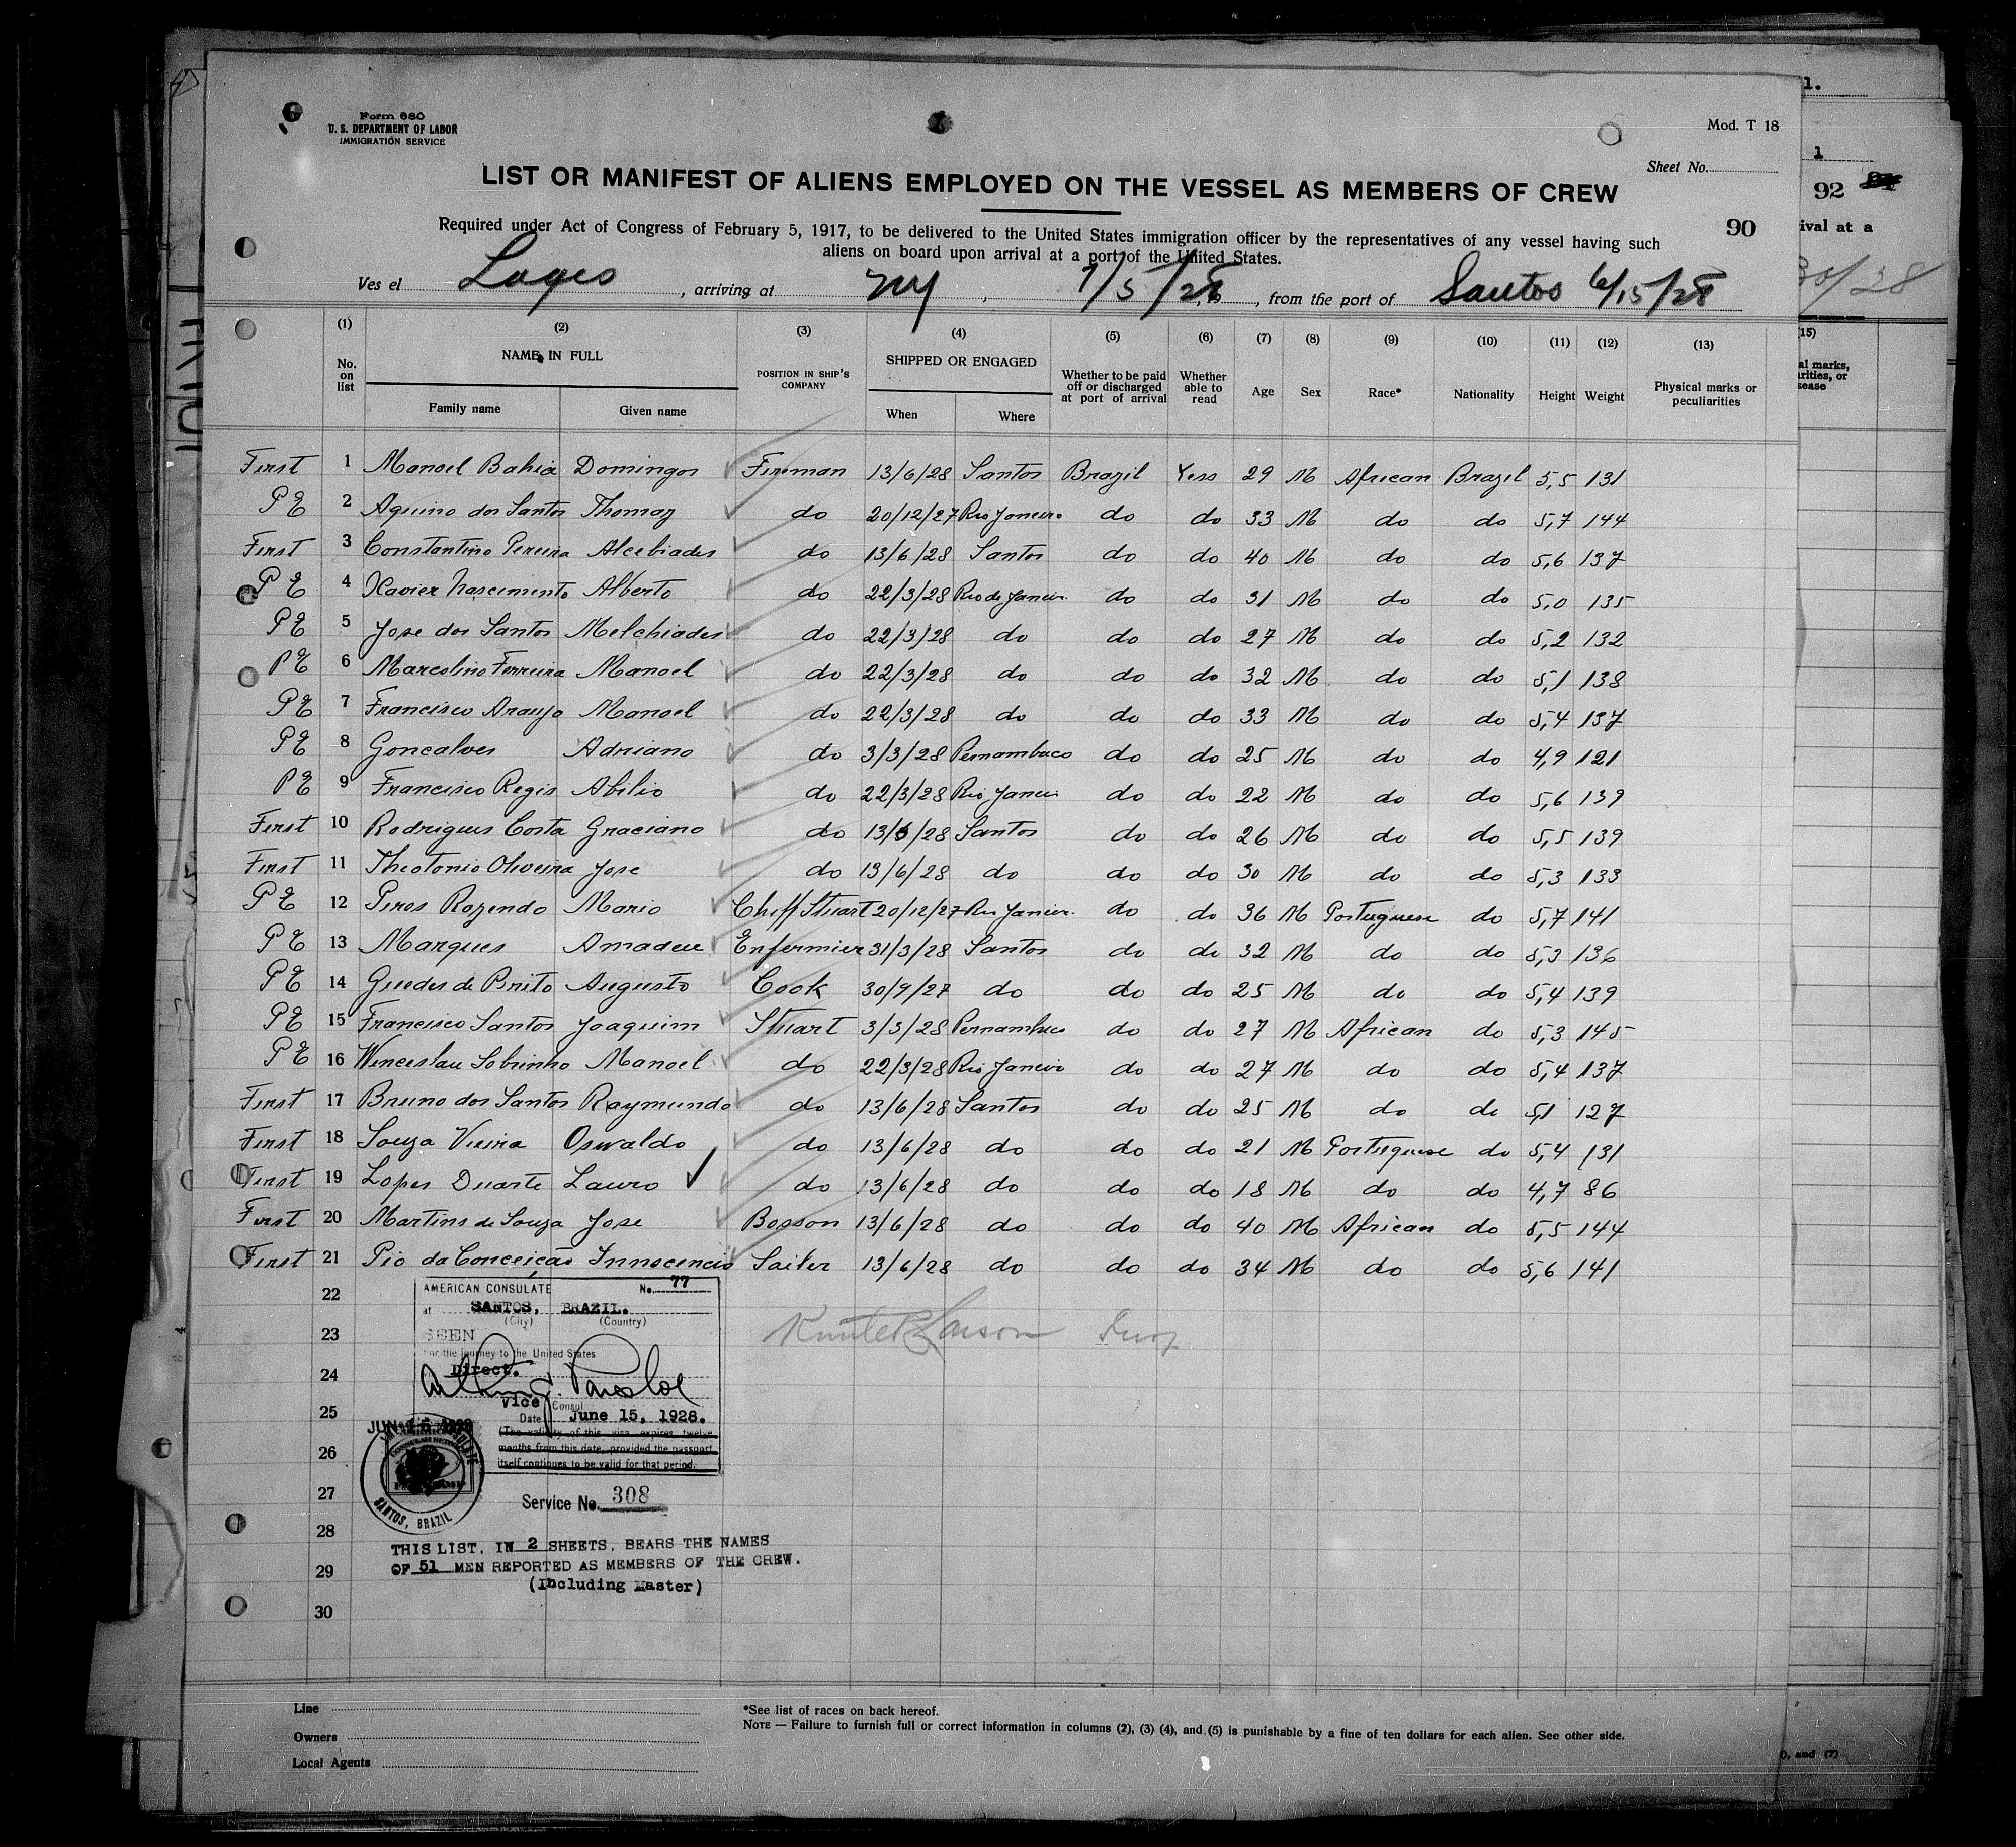 Form 680
U. S. DEPARTMENT OF LABOR
IMMIGRATION SERVICE
Mod. T 18
Sheet No.
LIST OR MANIFEST OF ALIENS EMPLOYED ON THE VESSEL AS MEMBERS OF CREW
90
Required under Act of Congress of February 5, 1917, to be delivered to the United States immigration officer by the representatives of any vessel having such
aliens on board upon arrival at a port of the United States.
Ves el Lages , arriving at NY , 7/5/28 , from the port of Santos 6/15/28
(1) (2) (3) (4) (5) (6) (7) (8) (9) (10) (11) (12) (13)
No. on list NAME IN FULL Family name Given name POSITION IN SHIP'S COMPANY SHIPPED OR ENGAGED When Where Whether to be paid off or discharged at port of arrival Whether able to read Age Sex Race* Nationality Height Weight Physical marks or peculiarities
First 1 Manoel Bahia Domingos Fireman 13/6/28 Santos Brazil Yess 29 M African Brazil 5,5 131
PE 2 Aquino dos Santos Thomaz do 20/12/27 Rio Janeiro do do 33 M do do 5,7 144
First 3 Constantino Pereira Alcebiades do 13/6/28 Santos do do 40 M do do 5,6 137
PE 4 Xavier Nascimento Alberto do 22/3/28 Rio de Janeir. do do 31 M do do 5,0 135
PE 5 Jose dos Santos Melchiades do 22/3/28 do do do 27 M do do 5,2 132
PE 6 Marcolino Ferreira Manoel do 22/3/28 do do do 32 M do do 5,1 138
PE 7 Francisco Araujo Manoel do 22/3/28 do do do 33 M do do 5,4 137
PE 8 Goncalves Adriano do 3/3/28 Pernambuco do do 25 M do do 4,9 121
PE 9 Francisco Regis Abilio do 22/3/28 Rio Janeir do do 22 M do do 5,6 139
First 10 Rodrigues Costa Graciano do 13/6/28 Santos do do 26 M do do 5,5 139
First 11 Theotonio Oliveira Jose do 13/6/28 do do do 30 M do do 5,3 133
PE 12 Pires Rozendo Mario Cheff Stuart 20/12/27 Rio Janeir. do do 36 M Portuguese do 5,7 141
PE 13 Marques Amadeu Enfermier 31/3/28 Santos do do 32 M do do 5,3 136
PE 14 Guedes de Brito Augusto Cook 30/9/27 do do do 25 M do do 5,4 139
PE 15 Francisco Santos Joaquim Stuart 3/3/28 Pernambuco do do 27 M African do 5,3 145
PE 16 Wenceslau Sobrinho Manoel do 22/3/28 Rio Janeiro do do 27 M do do 5,4 137
First 17 Bruno dos Santos Raymundo do 13/6/28 Santos do do 25 M do do 5,1 127
First 18 Souza Vieira Oswaldo do 13/6/28 do do do 21 M Portuguese do 5,4 131
First 19 Lopes Duarte Lauro do 13/6/28 do do do 18 M do do 4,7 86
First 20 Martins de Souza Jose Bosson 13/6/28 do do do 40 M African do 5,5 144
First 21 Pio da Conceição Innocencio Sailer 13/6/28 do do do 34 M do do 5,6 141
22
23
24
25
26
27
28
29
30
AMERICAN CONSULATE No. 77
at SANTOS, BRAZIL.
(City) (Country)
SEEN
For the journey to the United States
Direct.
Vice Consul
Date June 15, 1928.
(The validity of this visa expires twelve
months from this date, provided the passport
itself continues to be valid for that period.
SANTOS, BRAZIL
Service No. 308
THIS LIST, IN 2 SHEETS, BEARS THE NAMES
OF 51 MEN REPORTED AS MEMBERS OF THE CREW.
(Including Master)
Line
Owners
Local Agents
*See list of races on back hereof.
NOTE — Failure to furnish full or correct information in columns (2), (3) (4), and (5) is punishable by a fine of ten dollars for each alien. See other side.
1.
1
92
ival at a
30/28
(15)
al marks,
rities, or
sease
), and (7)